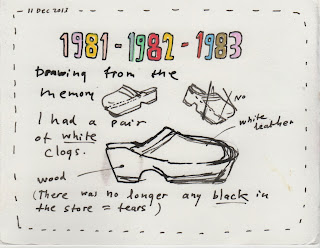 11 DEC 2013
1981-1982-1983
Drawing from the
memory
NO
I had a pair
of white
clogs.
white
leather
wood
(There was no longer any black in
the store = tears)